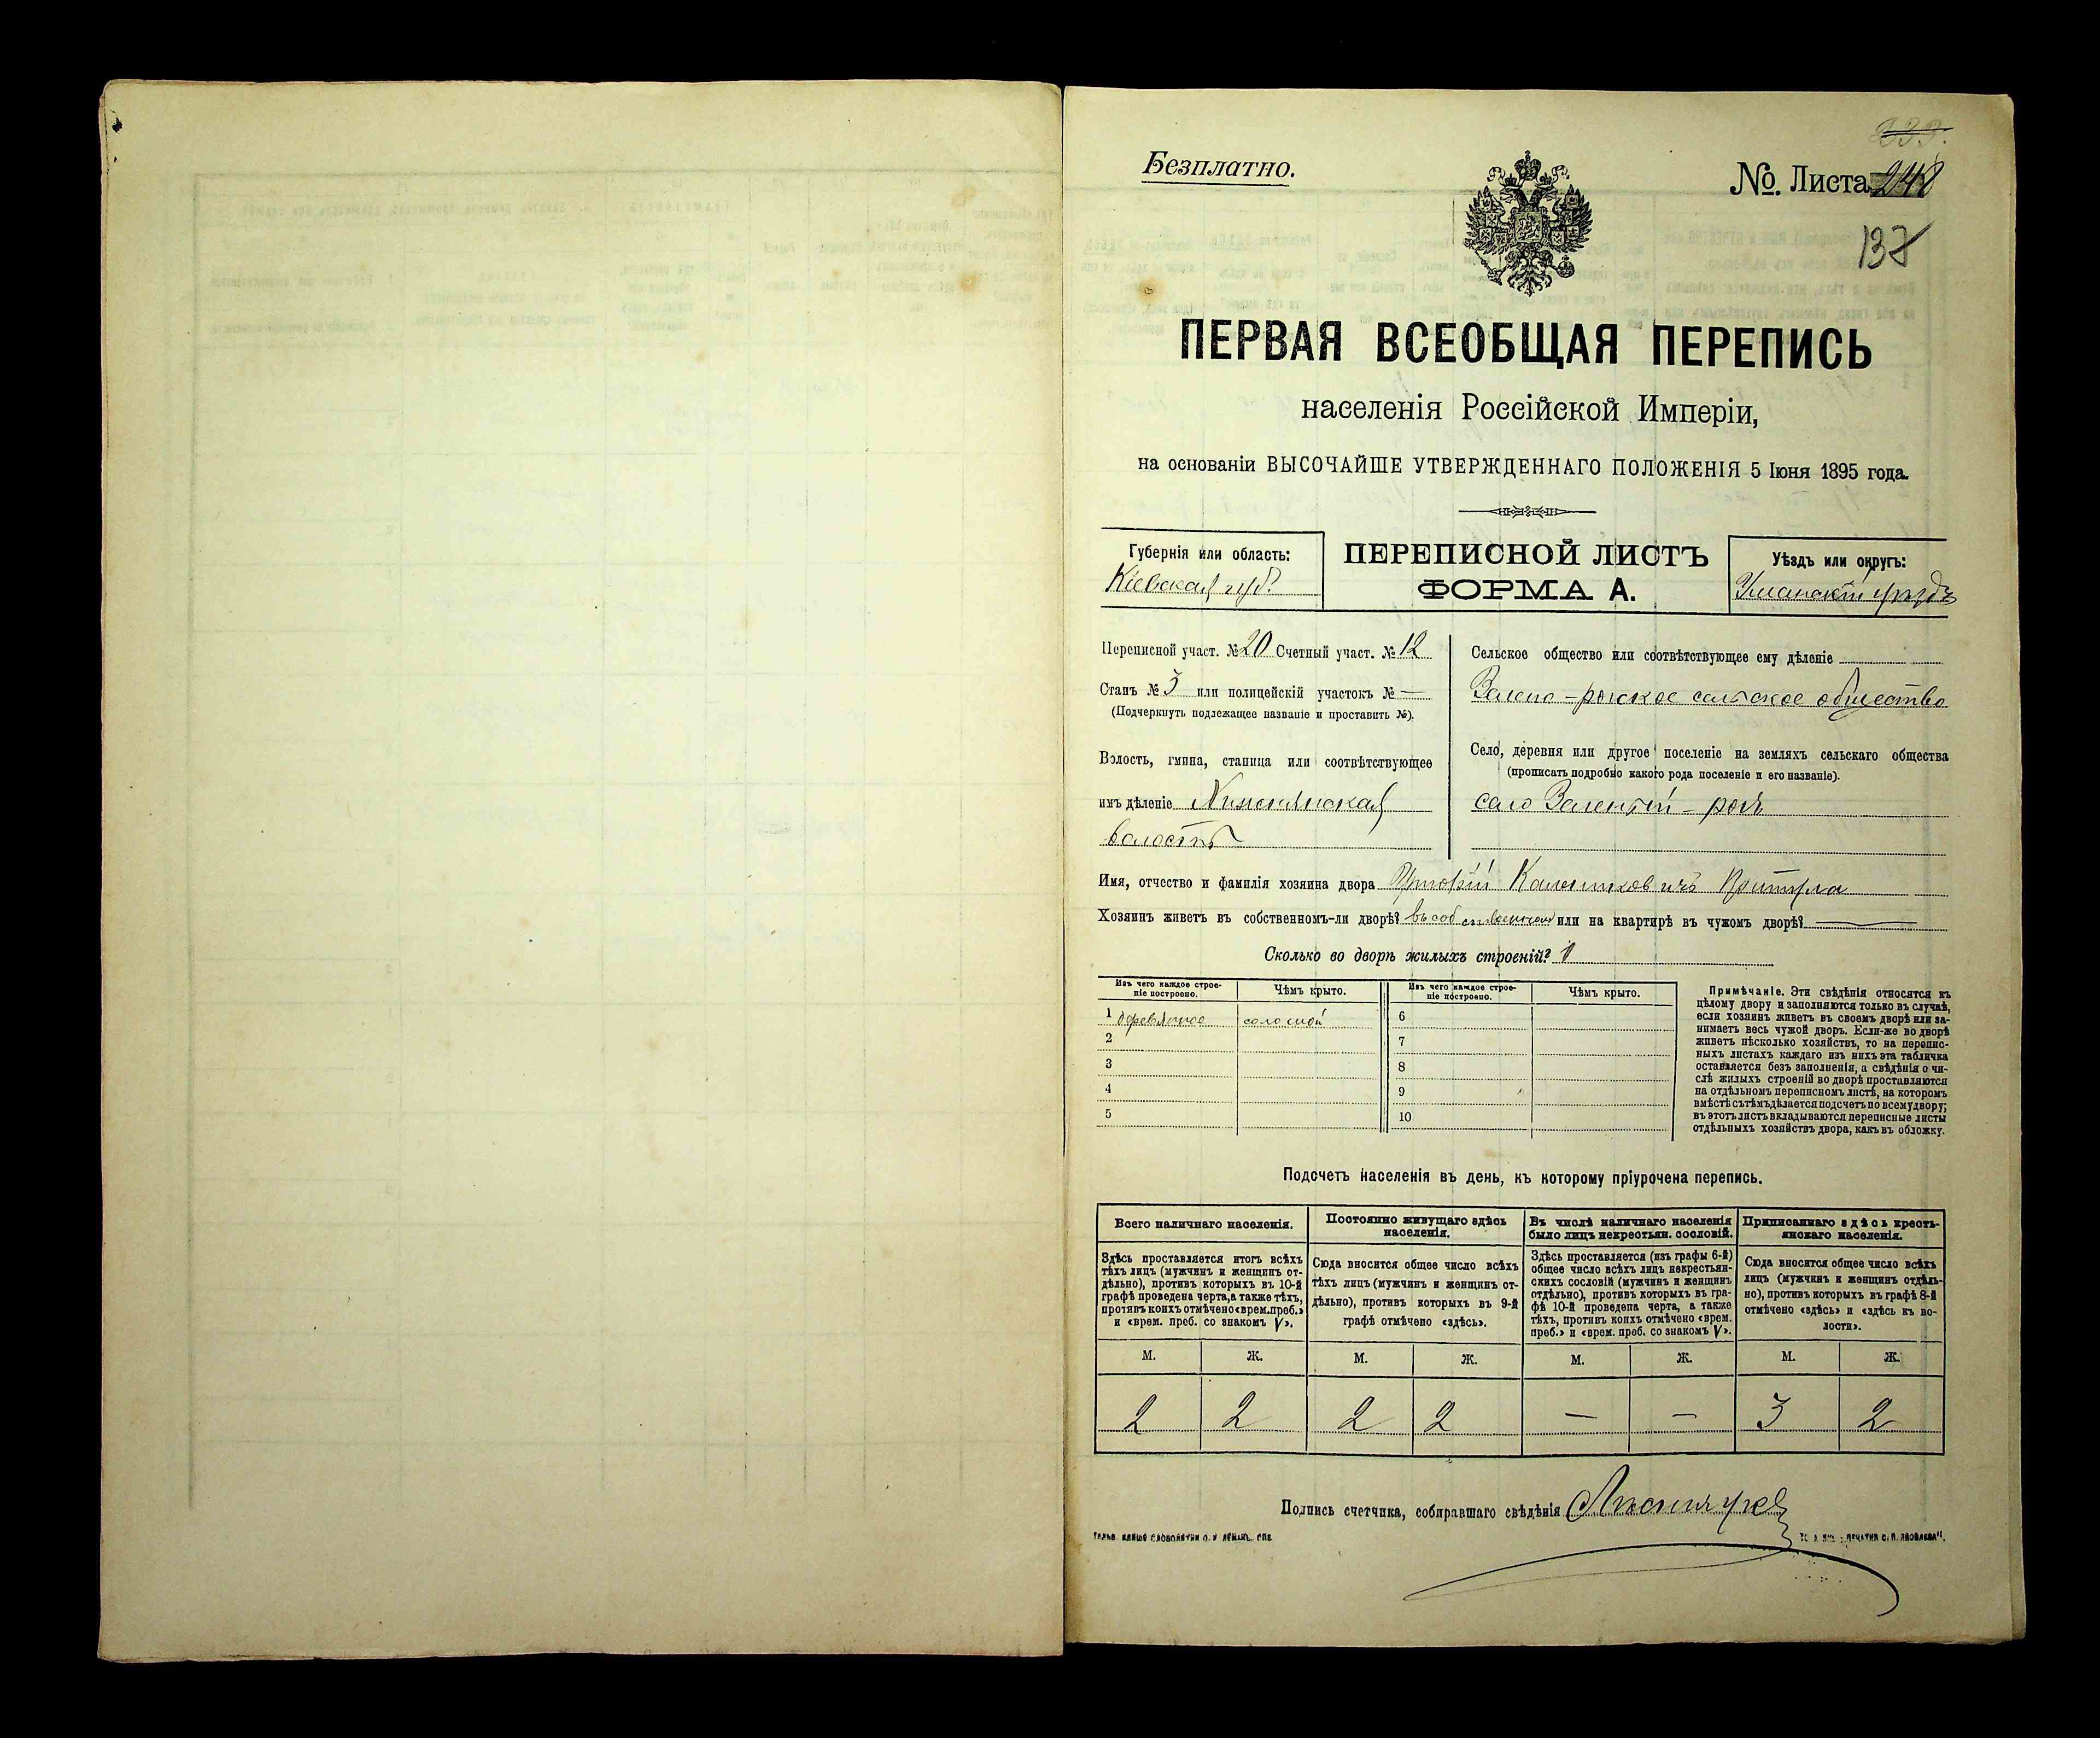 Безплатно.
№. Листа 248
137
ПЕРВАЯ ВСЕОБЩАЯ ПЕРЕПИСЬ
населенія Россійской Имперіи,
на основаніи ВЫСОЧАЙШЕ УТВЕРЖДЕННАГО ПОЛОЖЕНІЯ 5 Іюня 1895 года.
Губернія или область:
Кіевская губ.
ПЕРЕПИСНОЙ ЛИСТЪ
ФОРМА А.
Уѣздъ или округъ:
Уманскій уѣздъ
Переписной участ. № 20 Счетный участ. № 12
Станъ № 3 или полицейскій участокъ № —
(Подчеркнуть подлежащее названіе и проставить №).
Волость, гмина, станица или соотвѣтствующее
имъ дѣленіе
волость
Сельское общество или соотвѣтствующее ему дѣленіе
Зелено-рогское сельское общество
Село, деревня или другое поселеніе на земляхъ сельскаго общества
(прописать подробно какого рода поселеніе и его названіе).
село Зеленый-рогъ
Имя, отчество и фамилія хозяина двора
Хозяинъ живетъ въ собственномъ-ли дворѣ? въ собственномъ или на квартирѣ въ чужомъ дворѣ? —
Сколько во дворѣ жилыхъ строеній? 1
Изъ чего каждое строе-
ніе построено.
Чѣмъ крыто.
Изъ чего каждое строе-
ніе построено.
Чѣмъ крыто.
1 деревянное соломой
2
3
4
5
6
7
8
9
10
Примѣчаніе. Эти свѣдѣнія относятся къ
цѣлому двору и заполняются только въ случаѣ,
если хозяинъ живетъ въ своемъ дворѣ или за-
нимаетъ весь чужой дворъ. Если-же во дворѣ
живетъ нѣсколько хозяйствъ, то на перепис-
ныхъ листахъ каждаго изъ нихъ эта табличка
оставляется безъ заполненія, а свѣдѣнія о чи-
слѣ жилыхъ строеній во дворѣ проставляются
на отдѣльномъ переписномъ листѣ, на которомъ
вмѣстѣ съ тѣмъ дѣлается подсчетъ по всему двору;
въ этотъ листъ вкладываются переписные листы
отдѣльныхъ хозяйствъ двора, какъ въ обложку.
Подсчетъ населенія въ день, къ которому пріурочена перепись.
Всего наличнаго населенія.
Здѣсь проставляется итогъ всѣхъ
тѣхъ лицъ (мужчинъ и женщинъ от-
дѣльно), противъ которыхъ въ 10-й
графѣ проведена черта, а также тѣхъ,
противъ коихъ отмѣчено «врем. преб.»
и «врем. преб. со знакомъ V».
Постоянно живущаго здѣсь
населенія.
Сюда вносится общее число всѣхъ
тѣхъ лицъ (мужчинъ и женщинъ от-
дѣльно), противъ которыхъ въ 9-й
графѣ отмѣчено «здѣсь».
Въ числѣ наличнаго населенія
было лицъ некрестьян. сословій.
Здѣсь проставляется (изъ графы 6-й)
общее число всѣхъ лицъ некрестьян-
скихъ сословій (мужчинъ и женщинъ
отдѣльно), противъ которыхъ въ гра-
фѣ 10-й проведена черта, а также
тѣхъ, противъ коихъ отмѣчено «врем.
преб.» и «врем. преб. со знакомъ V».
Приписаннаго здѣсь кресть-
янскаго населенія.
Сюда вносится общее число всѣхъ
лицъ (мужчинъ и женщинъ отдѣль-
но), противъ которыхъ въ графѣ 8-й
отмѣчено «здѣсь» и «здѣсь къ во-
лости».
М. Ж. М. Ж. М. Ж. М. Ж.
2 2 2 2 — — 3 2
Подпись счетчика, собиравшаго свѣдѣнія